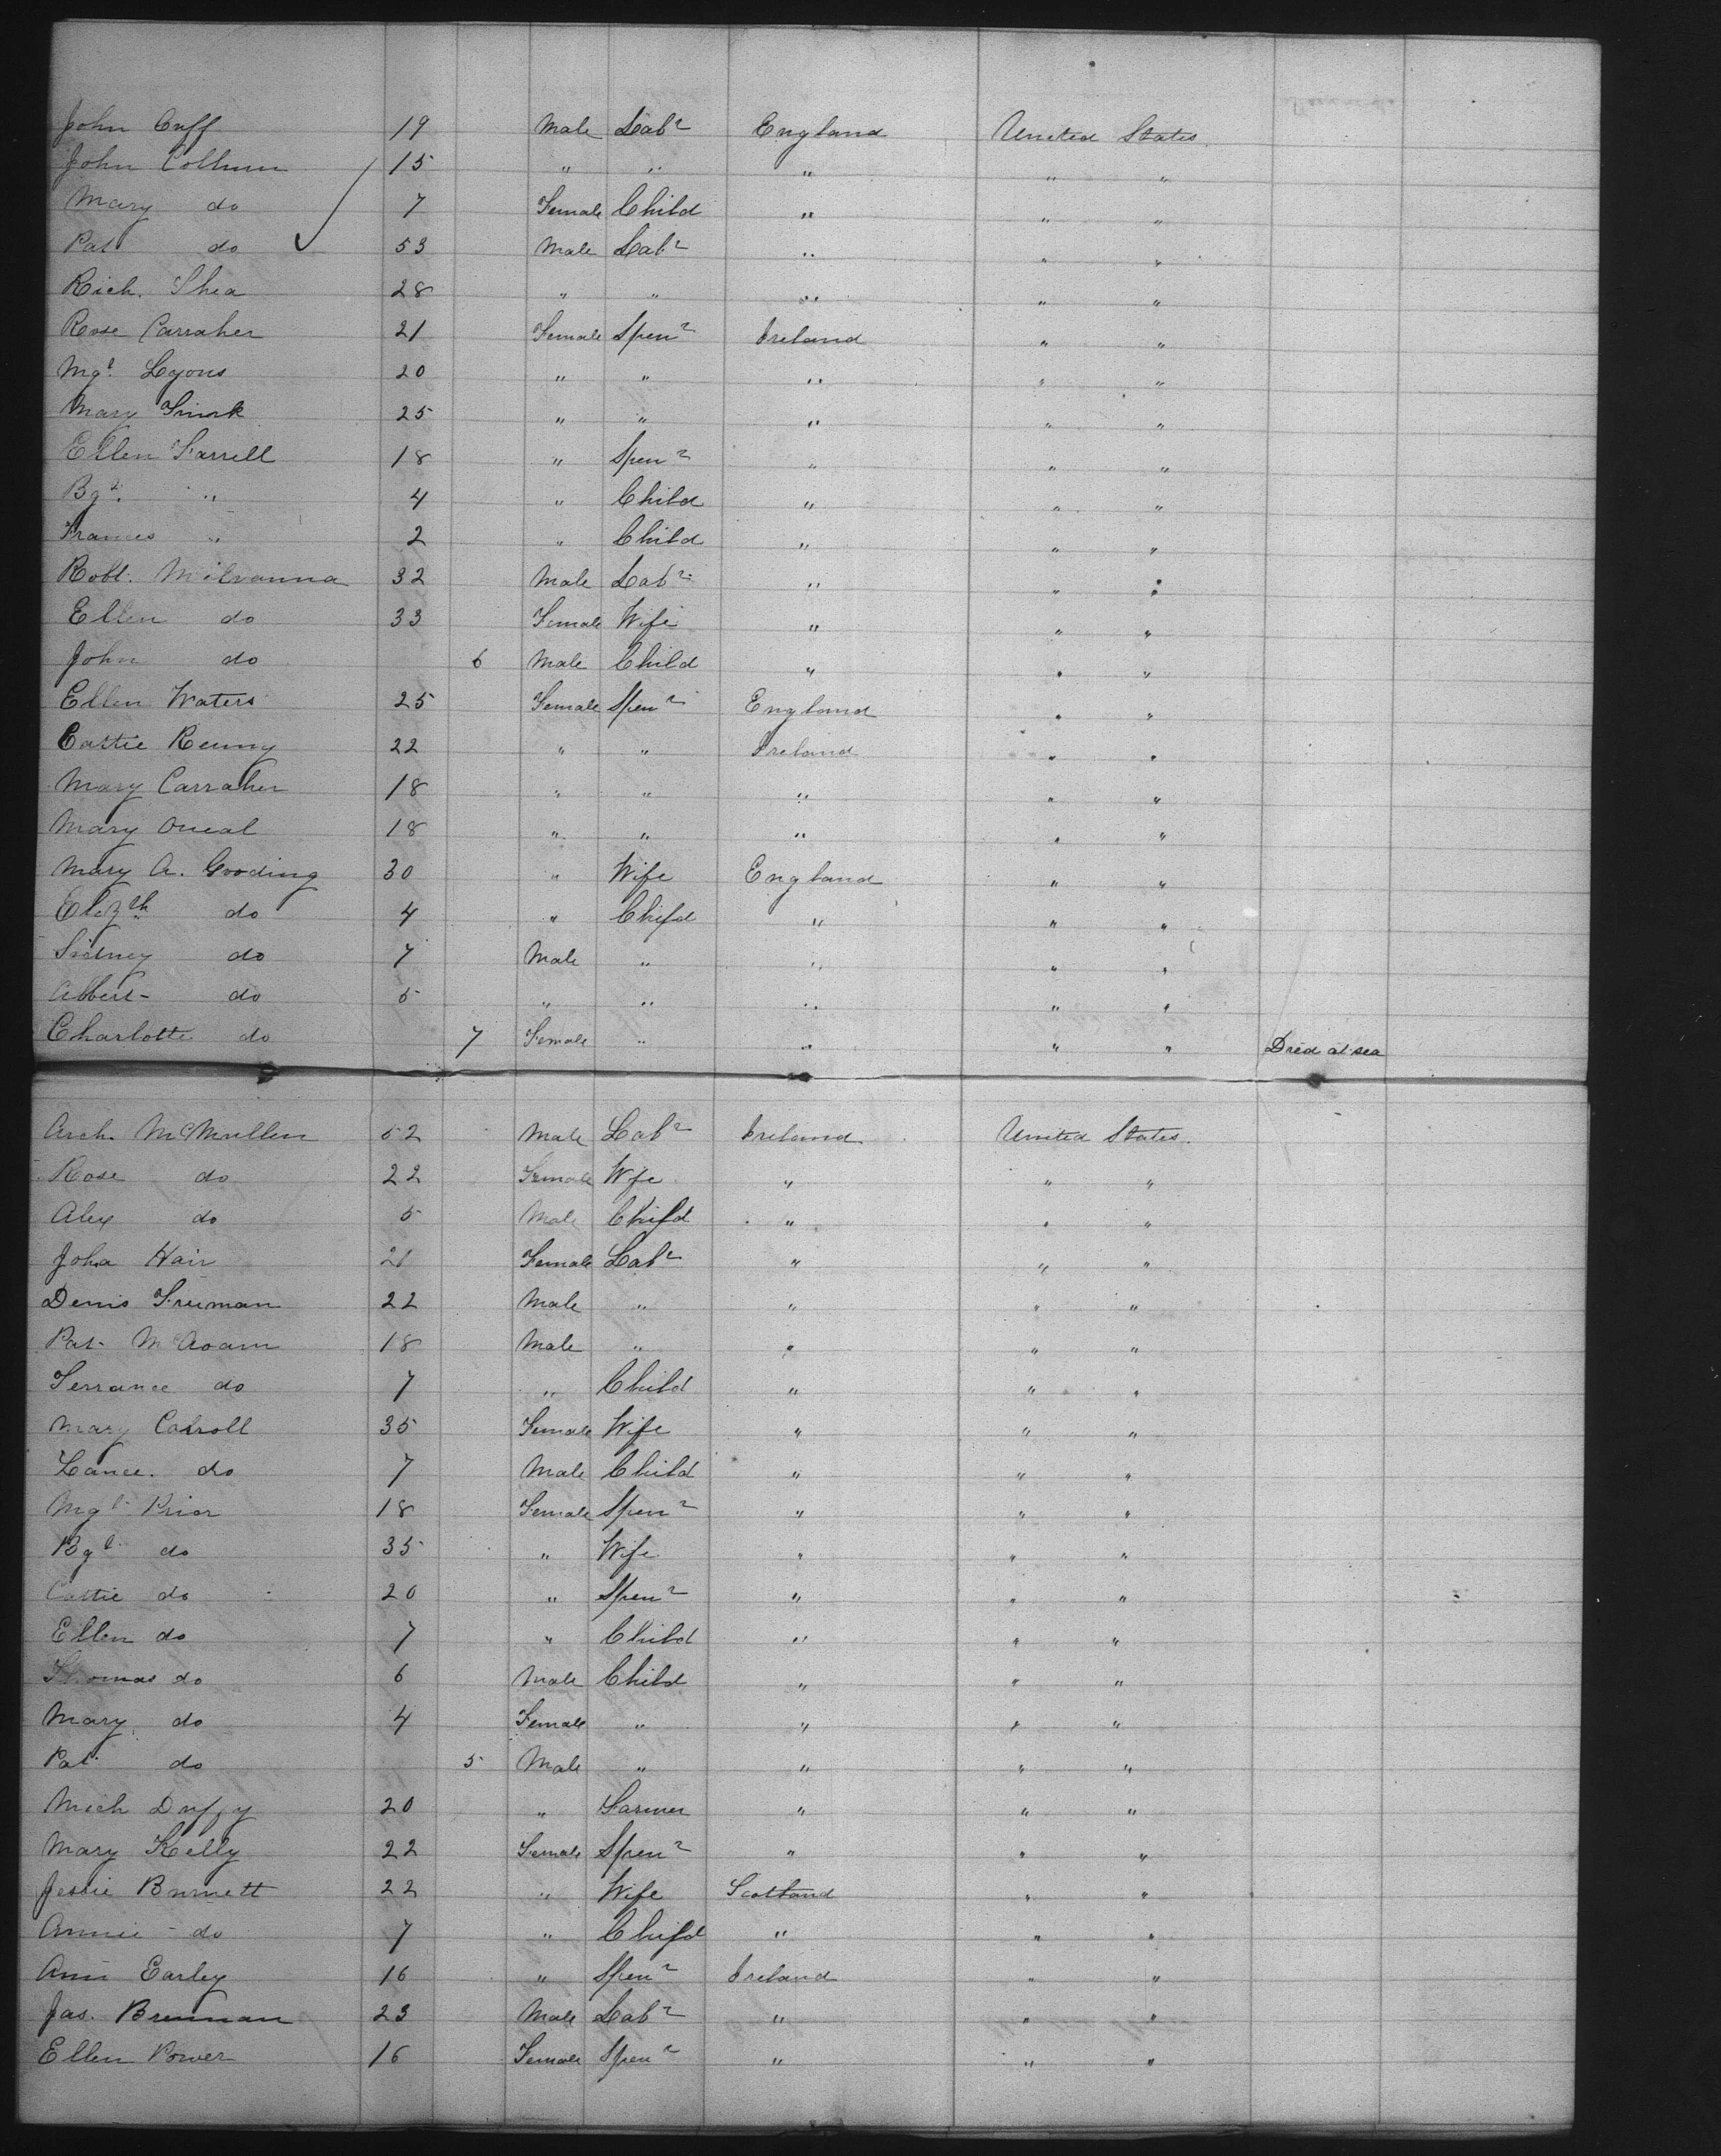 John Cuff 19 Male Labr England United States
John Colhun 15 " " " " "
Mary do 7 Female Child " " "
Pat do 53 Male Labr " " "
Rich. Shea 28 " " " " "
Rose Carraher 21 Female Spenr Ireland " "
Mgt. Lyons 20 " " " " "
Mary 25 " " " " "
Ellen Farrell 18 " Spenr " " "
Bgt. " 4 " Child " " "
Frances " 2 " Child " " "
Robt. McIlvanna 32 Male Labr " " "
Ellen do 33 Female Wife " " "
John do 6 Male Child " " "
Ellen Waters 25 Female Spenr England " "
Cattie Renny 22 " " Ireland " "
Mary Carraher 18 " " " " "
Mary Oneal 18 " " " " "
Mary A. Gooding 30 " Wife England " "
Elezth do 4 " Child " " "
Sidney do 7 Male " " " "
Albert do 5 " " " " "
Charlotte do 7 Female " " " " Died at sea
Arch. McMullen 52 Male Labr Ireland United States.
Rose do 22 Female Wife " " "
Alex do 5 Male Child " " "
John Hair 21 Female Labr " " "
Denis Freeman 22 Male " " " "
Pat McAdam 18 Male " " " "
Terrance do 7 " Child " " "
Mary Carroll 35 Female Wife " " "
Lance. do 7 Male Child " " "
Mgt Prior 18 Female Spenr " " "
Bgt. do 35 " Wife " " "
Cattie do 20 " Spenr " " "
Ellen do 7 " Child " " "
Thomas do 6 Male Child " " "
Mary do 4 Female " " " "
Pat do 5 Male " " " "
Mich Duffy 20 " Farmer " " "
Mary Kelly 22 Female Spenr " " "
Jessie Burnett 22 " Wife Scotland " "
Annie do 7 " Child " " "
Ann Earley 16 " Spenr Ireland " "
Jas. Brennan 23 Male Labr " " "
Ellen Power 16 Female Spenr " " "